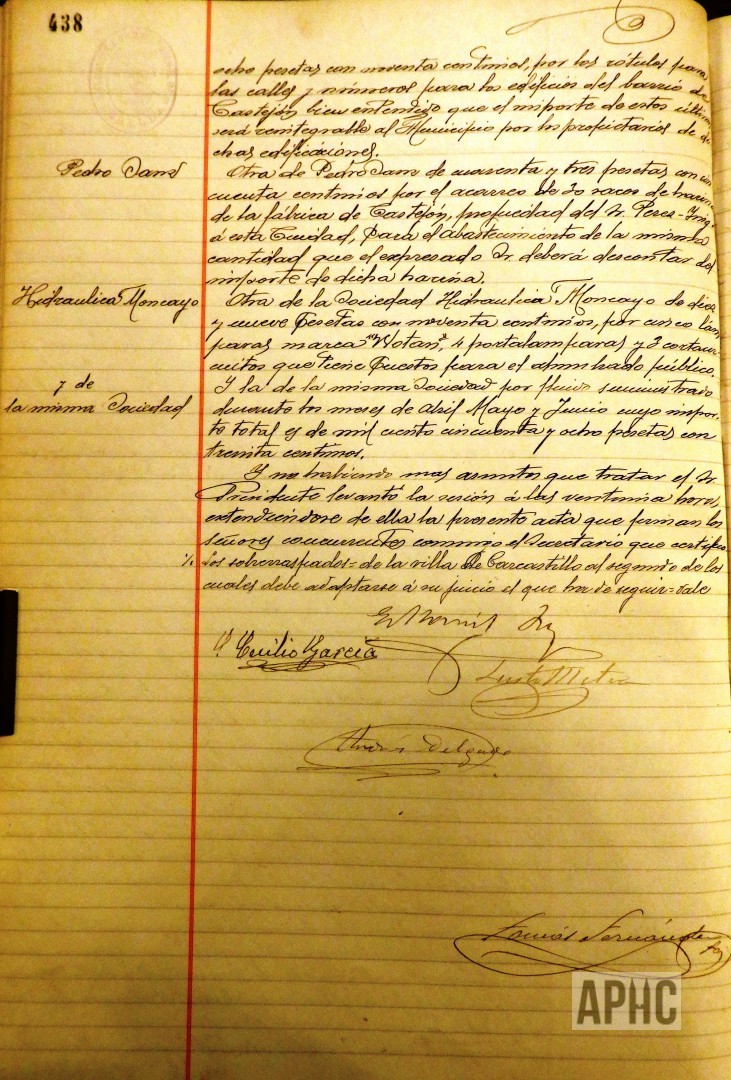 438
ocho pesetas con noventa centimos, por los rótulos para
las calles y números para los edificios del barrio de
Castejón bien entendido que el importe de estos últim
será reintegrable al Municipio por los propietarios de di
chas edificaciones.
Pedro Sanz
Otra de Pedro Sanz de cuarenta y tres pesetas con cin
cuenta centimos por el acarreo de 20 sacos de harina
de la fábrica de Castejón, propiedad del Sr. Perez-
á esta Ciudad, para el abastecimiento de la misma
cantidad que el expresado Sr. deberá descontar del
importe de dicha harina.
Hidraulica Moncayo
Otra de la Sociedad Hidraulica Moncayo de diez
y nueve pesetas con noventa centimos, por cinco lám
paras marca "Wotan", 4 portalamparas y 2 cortacir
cuitos que tiene puestos para el alumbrado público.
y de
la misma Sociedad
Y la de la misma Sociedad por fluido suministrado
durante los meses de Abril Mayo y Junio cuyo impor
te total es de mil ciento cincuenta y ocho pesetas con
treinta centimos.
Y no habiendo mas asuntos que tratar el Sr.
Presidente levantó la sesión á las veintiuna horas,
extendiéndose de ella la presente acta que firman los
señores concurrentes conmigo el Secretario que certifico
Los sobrerraspados=de la villa de Carcastillo al segundo de los
cuales debe adaptarse á su juicio el que ha de seguir=vale
Cecilio Garcia
Andrés Delgado
Tomás Fernández
APHC